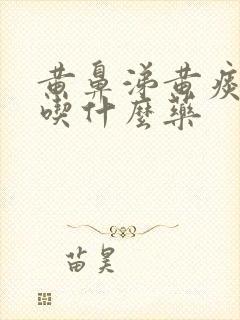 黄鼻涕黄痰
喫什麼藥
苗昊